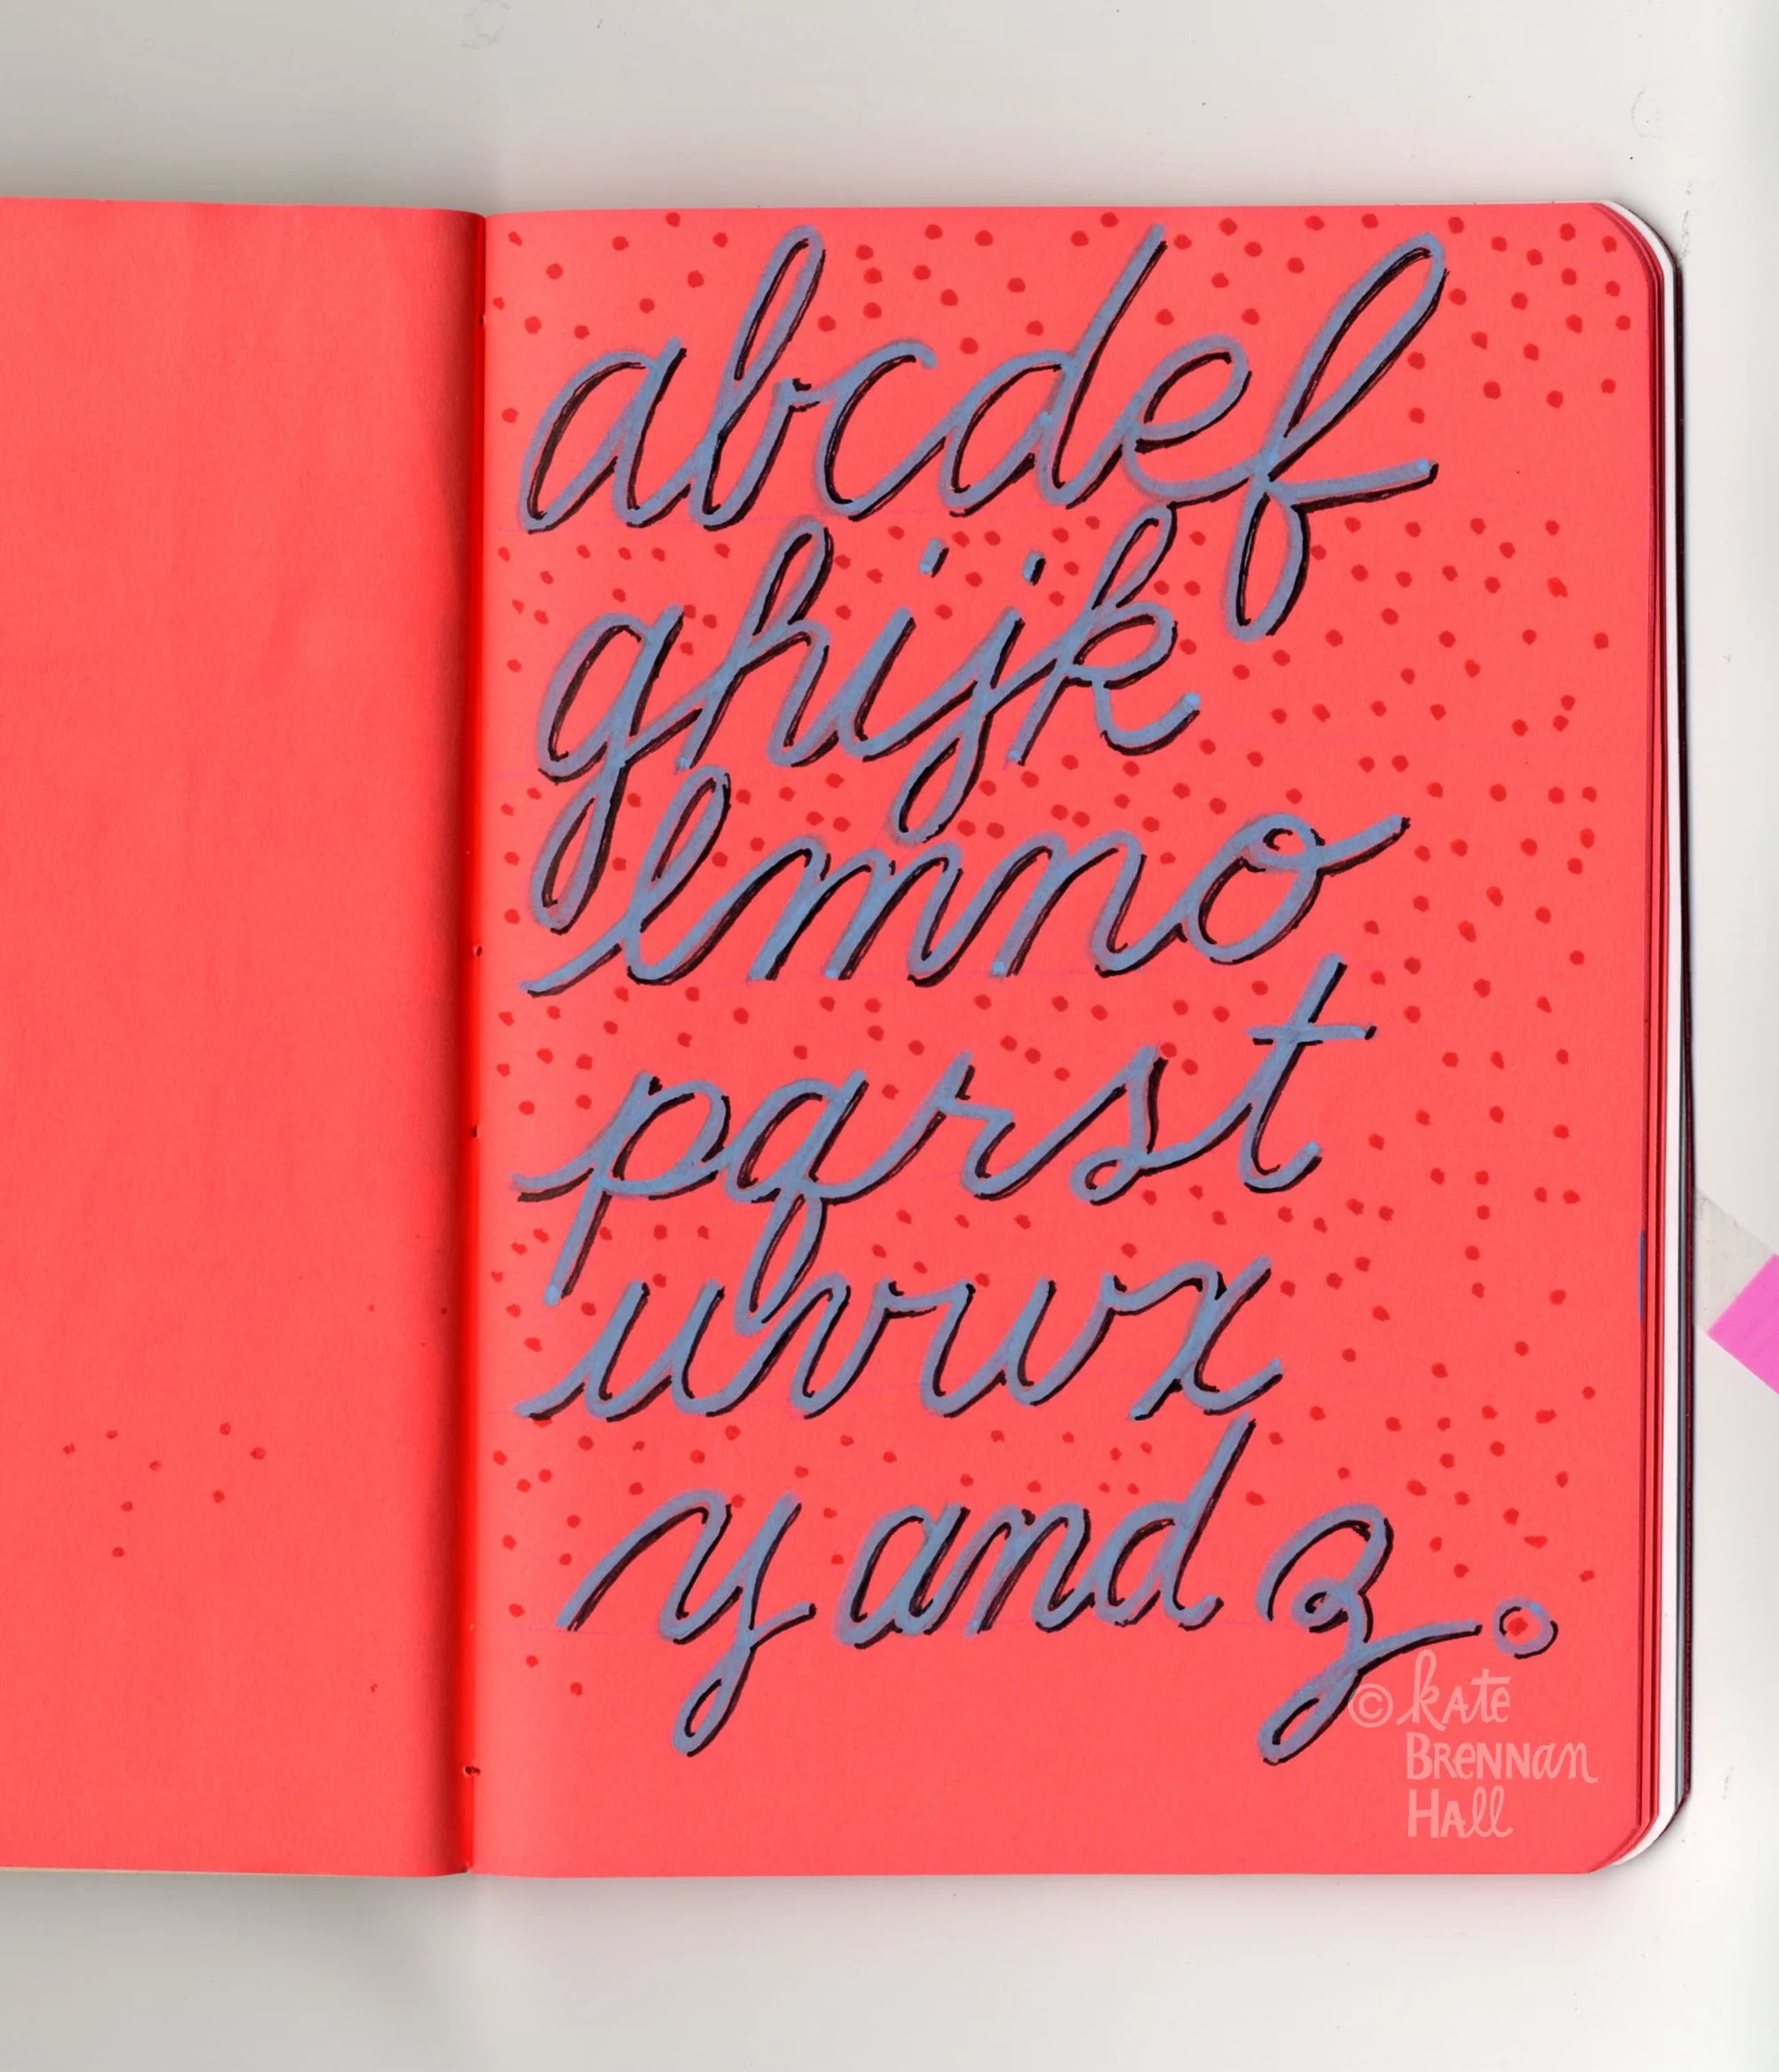 abcdef
ghijk
lmno
pqrst
uvwx
y and z.
© Kate
Brennan
Hall